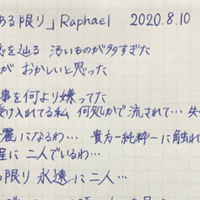 ある限り」Raphael 2020.8.10
を辿る 汚いものが多すぎた
が おかしいと思った
事を何より嫌ってた
受け入れてる私 何処かで流されて… 失
麗になるわ… 貴方一純粋一に触れ
に二人でいるわ…
限り 永遠に二人…